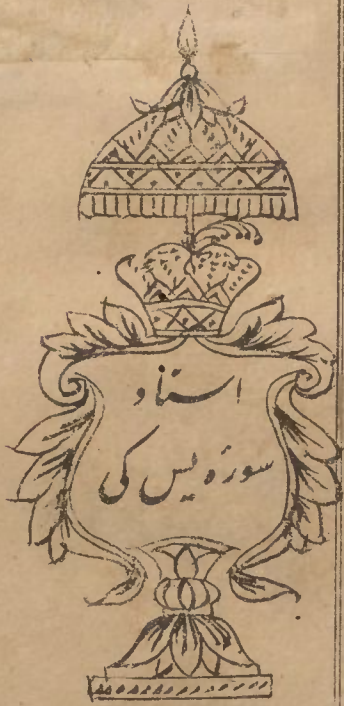 اسناد
سورۂ یٰس کی